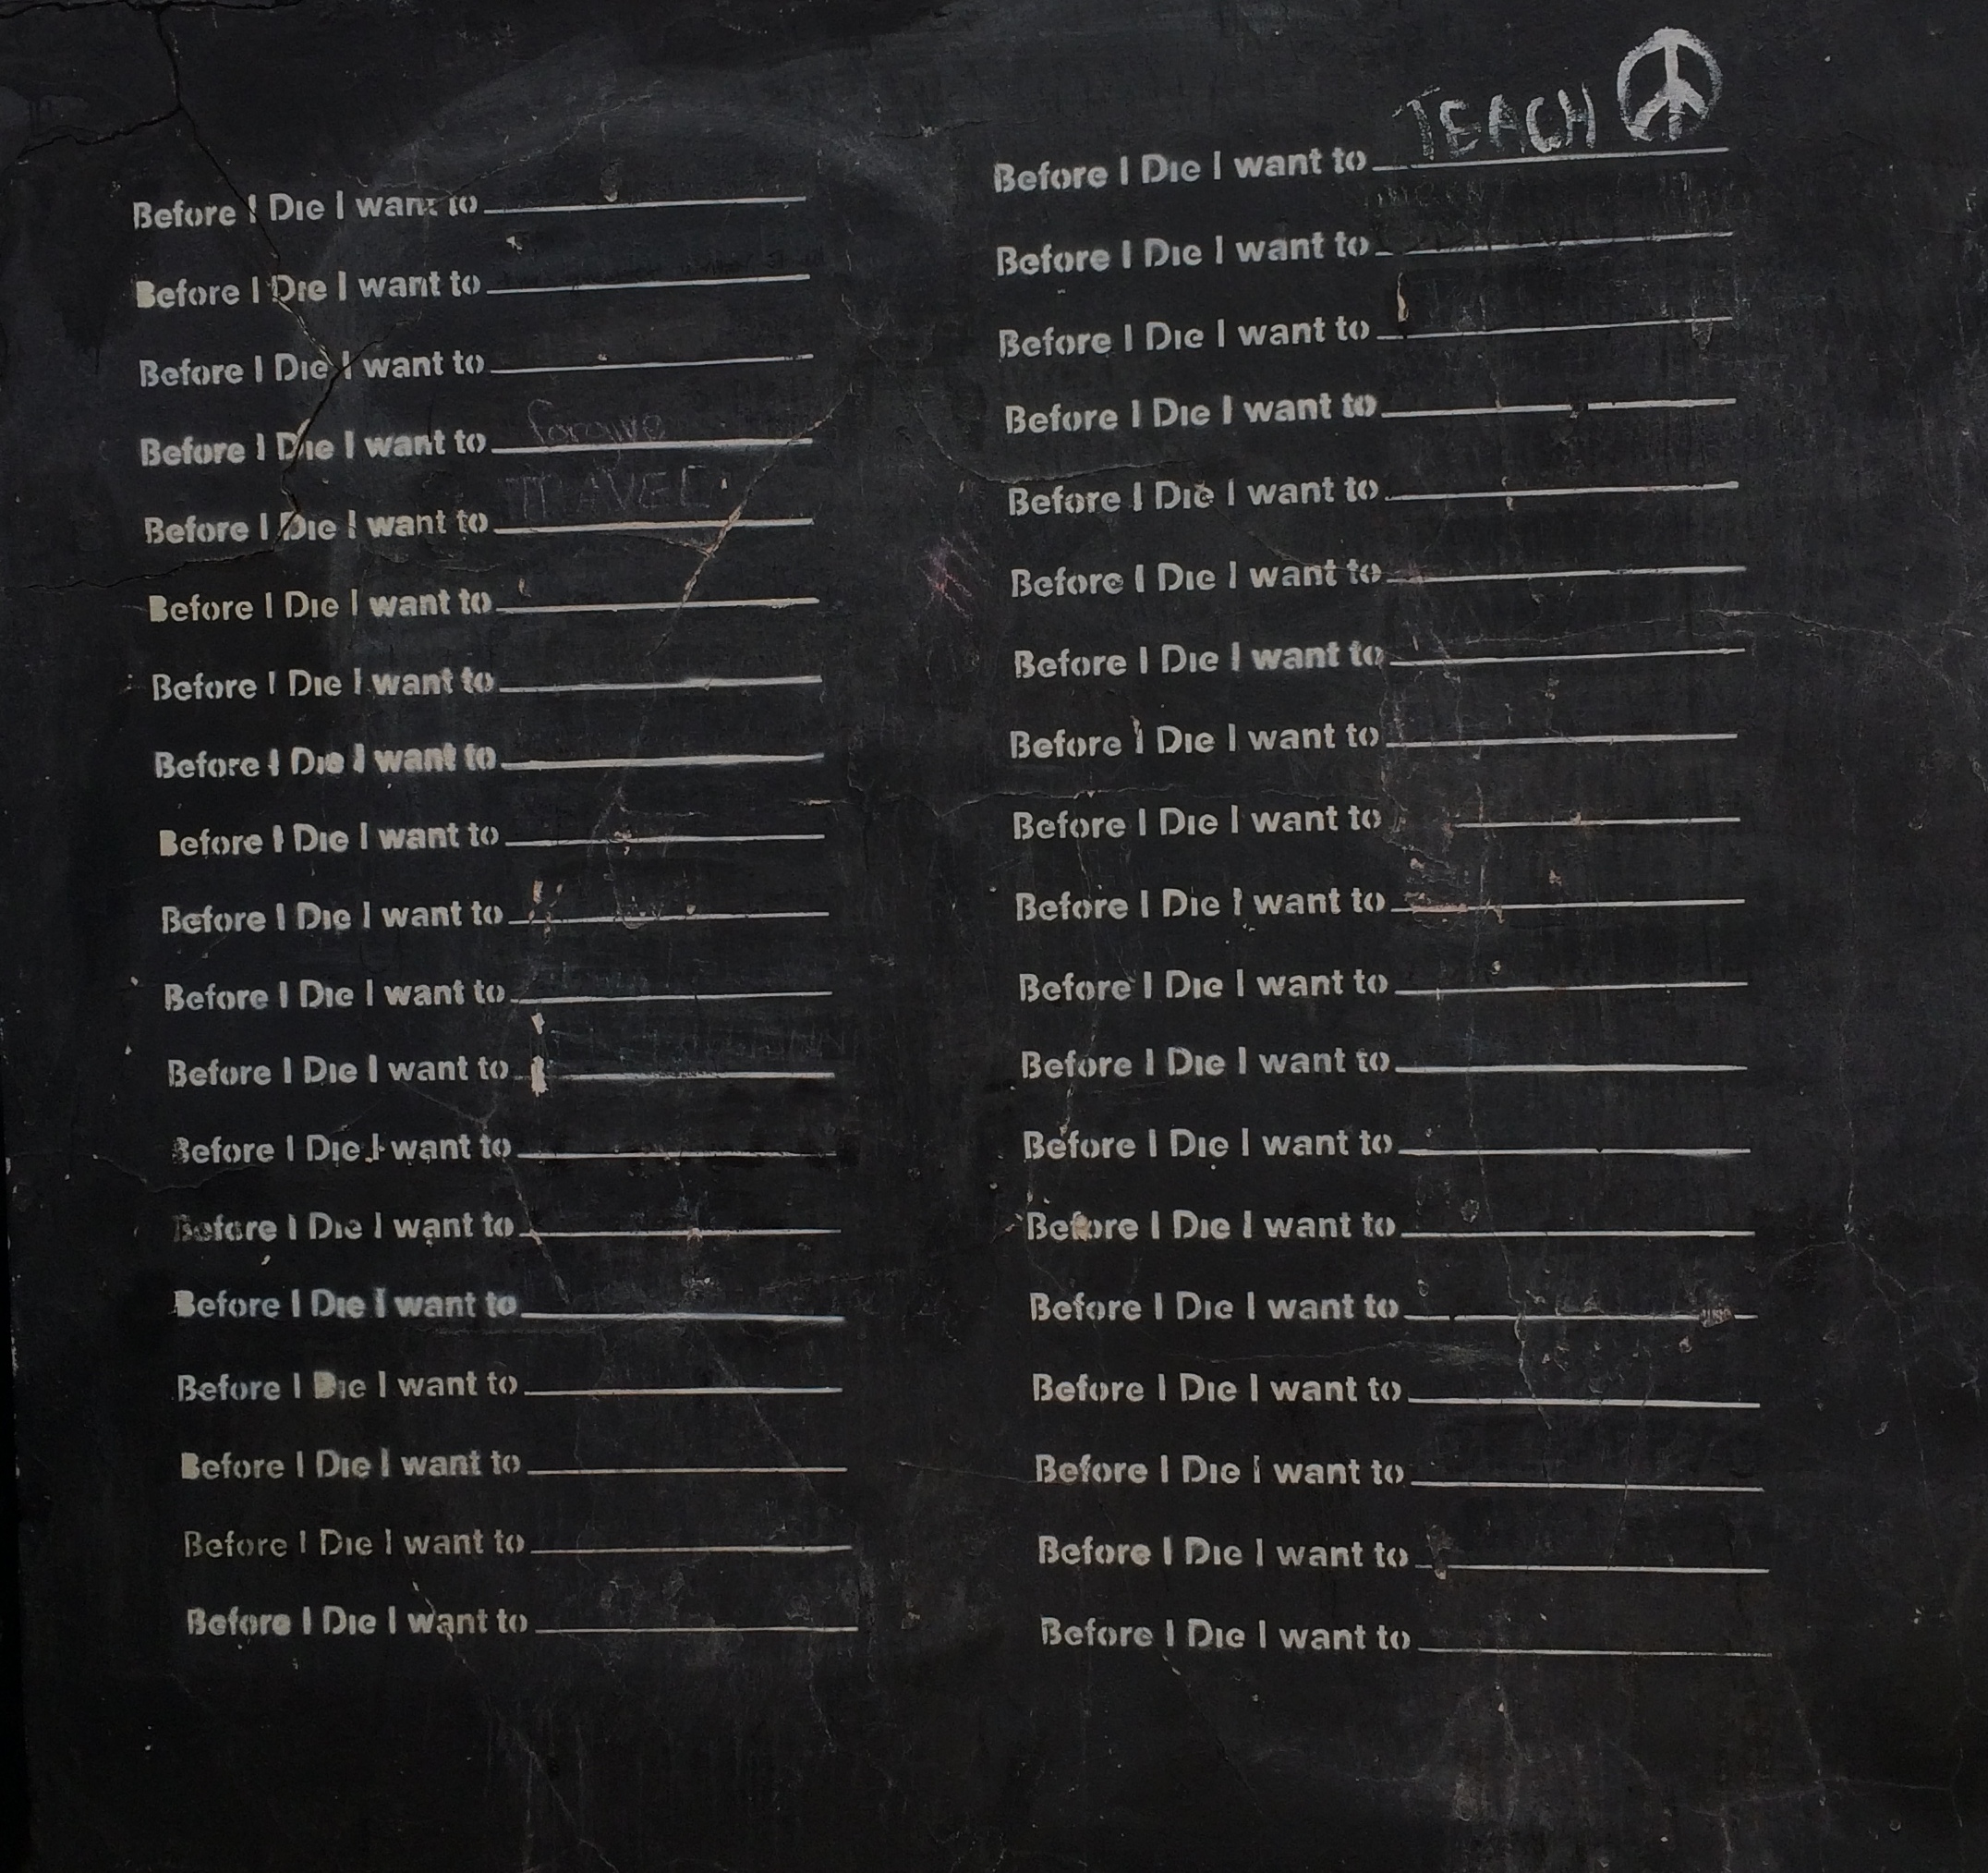 Before I Die I want to
Before I Die I want to
Before I Die I want to
Before I Die I want to forgive
Before I Die I want to TRAVEL
Before I Die I want to
Before I Die I want to
Before I Die I want to
Before I Die I want to
Before I Die I want to
Before I Die I want to
Before I Die I want to
Before I Die I want to
Before I Die I want to
Before I Die I want to
Before I Die I want to
Before I Die I want to
Before I Die I want to
Before I Die I want to
Before I Die I want to TEACH
Before I Die I want to
Before I Die I want to
Before I Die I want to
Before I Die I want to
Before I Die I want to
Before I Die I want to
Before I Die I want to
Before I Die I want to
Before I Die I want to
Before I Die I want to
Before I Die I want to
Before I Die I want to
Before I Die I want to
Before I Die I want to
Before I Die I want to
Before I Die I want to
Before I Die I want to
Before I Die I want to